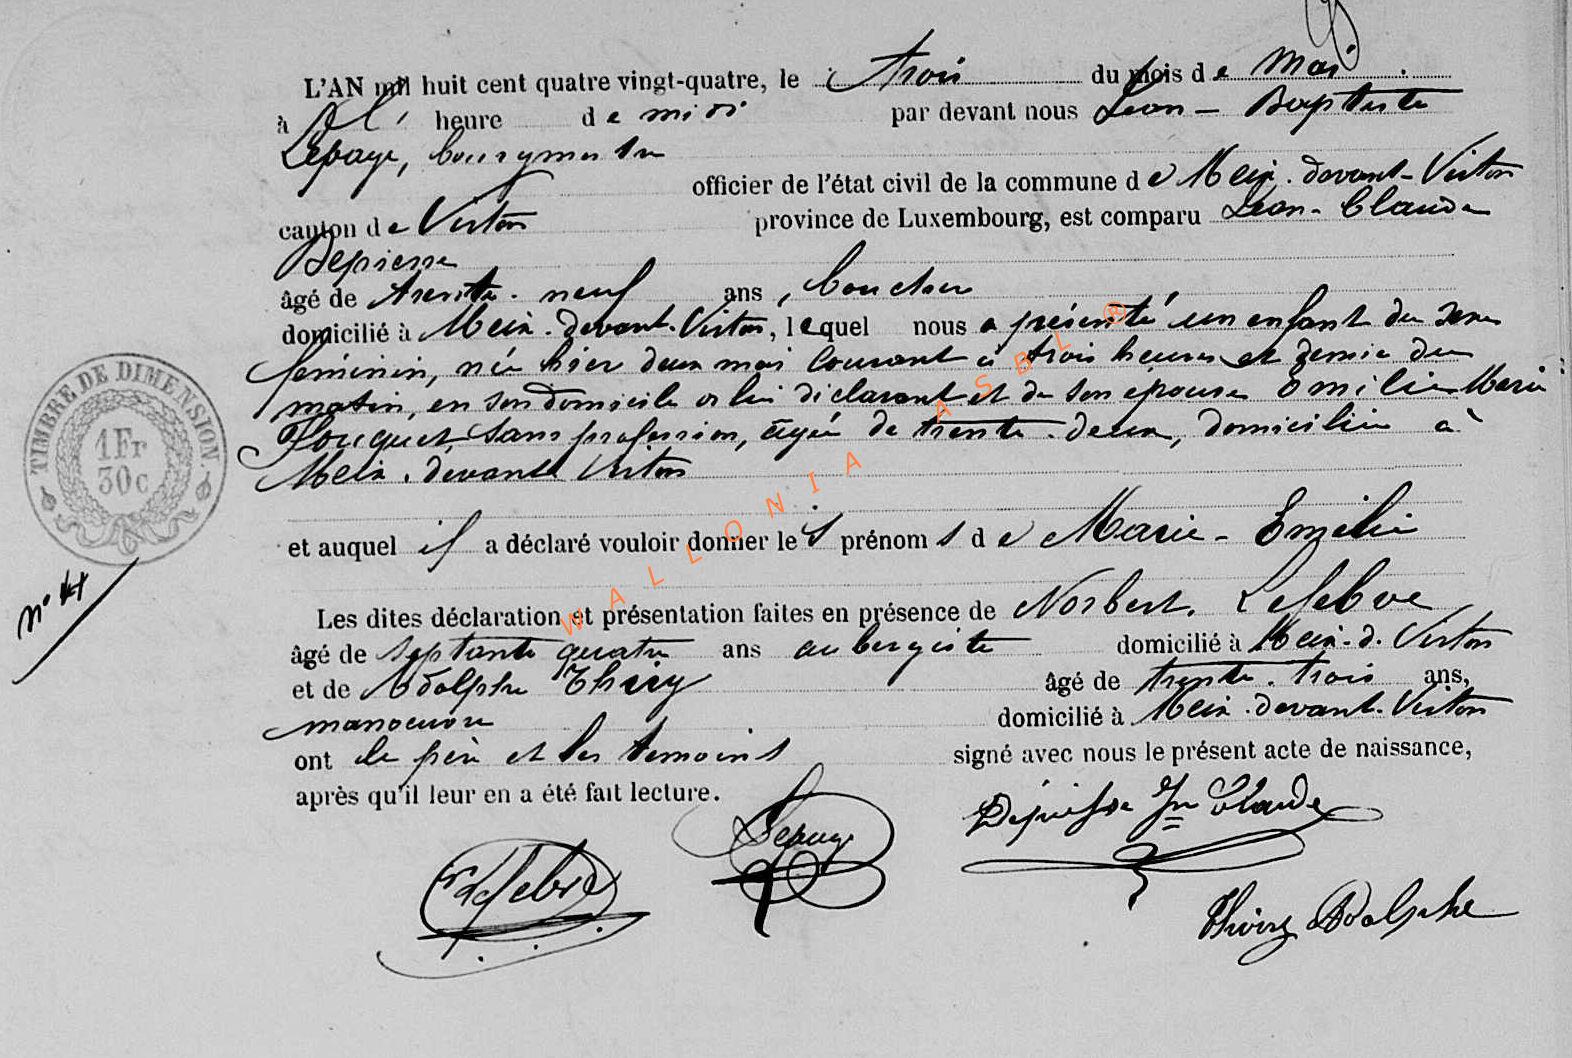 L'AN mil huit cent quatre vingt-quatre, le trois du mois de Mai
à l' heure de midi par devant nous Léon-Baptiste
Lepage, bourgmestre
officier de l'état civil de la commune de Meix-devant-Virton
canton de Virton province de Luxembourg, est comparu Jean-Claude
Depiesse
âgé de trente-neuf ans, boucher
domicilié à Meix-devant-Virton, lequel nous a présenté un enfant du sexe
féminin, née hier deux mai courant à trois heures et demie du
matin, en son domicile de lui déclarant et de son épouse Emilie Marie
Fouquet, sans profession, âgée de trente-deux, domiciliée à
Meix-devant Virton
et auquel il a déclaré vouloir donner les prénoms de Marie-Emélie
Les dites déclaration et présentation faites en présence de Norbert Lefebve
âgé de septante quatre ans aubergiste domicilié à Meix-d-Virton
et de Adolphe Thiry âgé de trente-trois ans,
manoeuvre domicilié à Meix-devant-Virton
ont le père et les temoins signé avec nous le présent acte de naissance,
après qu'il leur en a été fait lecture.
TIMBRE DE DIMENSION.
1Fr
30c
n° 41
Lepage
Depiesse Jn Claude
N Lefebve
Thiry Adolphe
WALLONIA ASBL ®